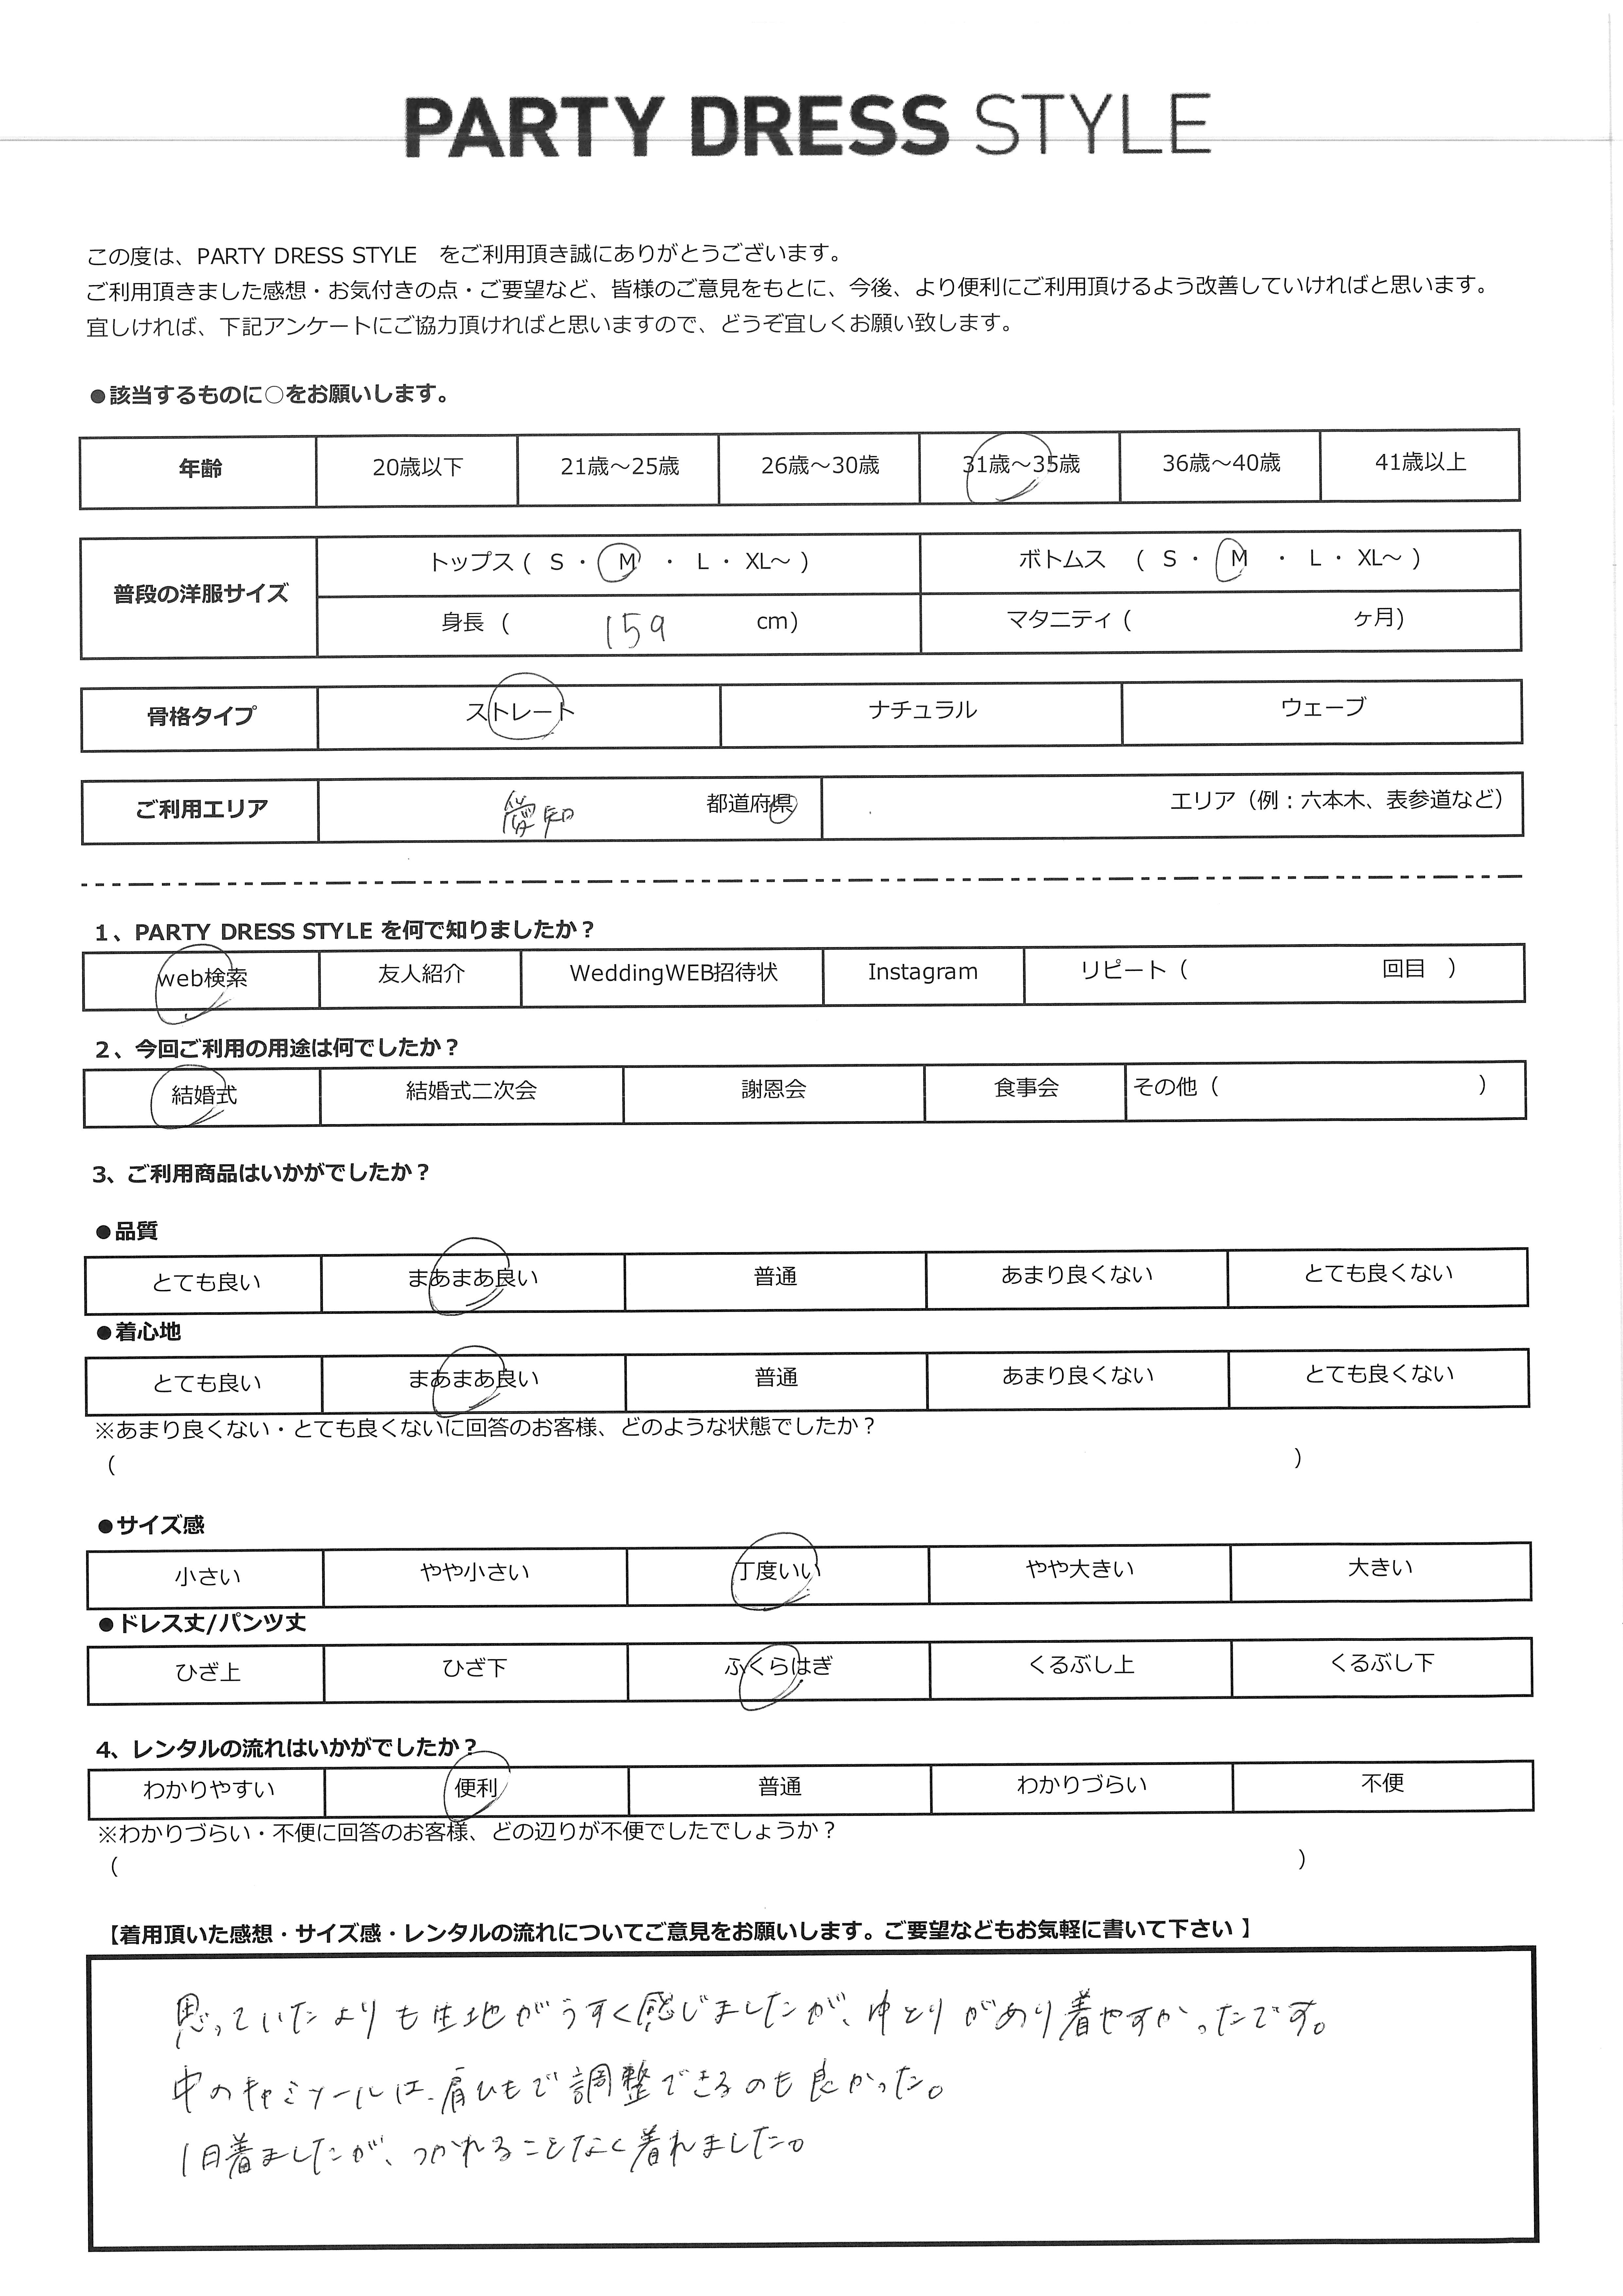 PARTY DRESS STYLE
この度は、PARTY DRESS STYLE　をご利用頂き誠にありがとうございます。
ご利用頂きました感想・お気付きの点・ご要望など、皆様のご意見をもとに、今後、より便利にご利用頂けるよう改善していければと思います。
宜しければ、下記アンケートにご協力頂ければと思いますので、どうぞ宜しくお願い致します。
●該当するものに○をお願いします。
年齢 20歳以下 21歳～25歳 26歳～30歳 31歳～35歳 36歳～40歳 41歳以上
普段の洋服サイズ
トップス ( S ・ M ・ L ・ XL～ ) ボトムス ( S ・ M ・ L ・ XL～ )
身長 ( 159 cm) マタニティ ( ヶ月)
骨格タイプ ストレート ナチュラル ウェーブ
ご利用エリア 愛知 都道府県 エリア（例：六本木、表参道など）
1、PARTY DRESS STYLE を何で知りましたか？
web検索 友人紹介 WeddingWEB招待状 Instagram リピート（ 回目 ）
2、今回ご利用の用途は何でしたか？
結婚式 結婚式二次会 謝恩会 食事会 その他（ ）
3、ご利用商品はいかがでしたか？
●品質
とても良い まあまあ良い 普通 あまり良くない とても良くない
●着心地
とても良い まあまあ良い 普通 あまり良くない とても良くない
※あまり良くない・とても良くないに回答のお客様、どのような状態でしたか？
( )
●サイズ感
小さい やや小さい 丁度いい やや大きい 大きい
●ドレス丈/パンツ丈
ひざ上 ひざ下 ふくらはぎ くるぶし上 くるぶし下
4、レンタルの流れはいかがでしたか？
わかりやすい 便利 普通 わかりづらい 不便
※わかりづらい・不便に回答のお客様、どの辺りが不便でしたでしょうか？
( )
【着用頂いた感想・サイズ感・レンタルの流れについてご意見をお願いします。ご要望などもお気軽に書いて下さい 】
思っていたよりも生地がうすく感じましたが、ゆとりがあり着やすかったです。
中のキャミソールは、肩ひもで調整できるのも良かった。
1日着ましたが、つかれることなく着れました。